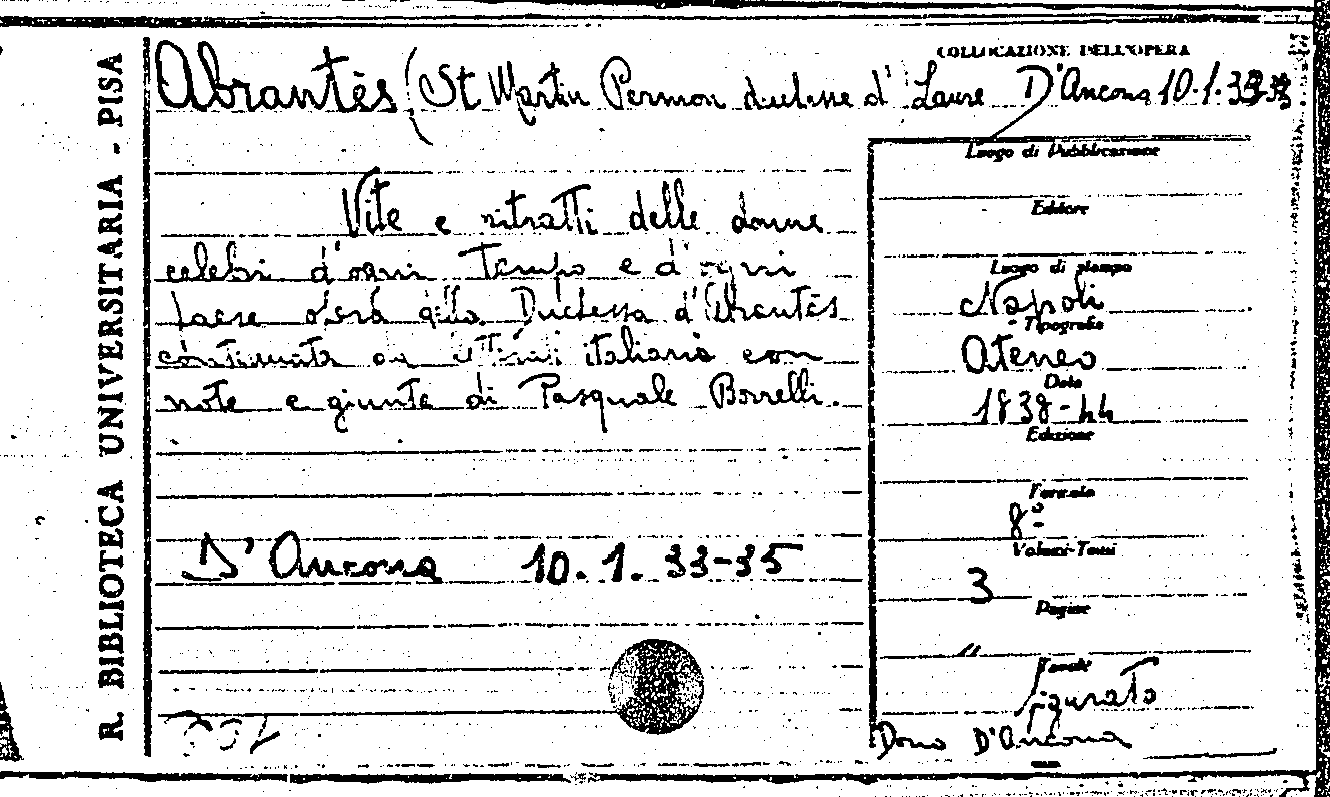 R. BIBLIOTECA UNIVERSITARIA - PISA
COLLOCAZIONE DELL'OPERA
Abrantès (St Martin Permon duchesse d' Laure D'Ancona 10.1.33-35
Vite e ritratti delle donne
celebri d'ogni tempo e d'ogni
paese della Duchessa d'Abrantès
continuata italiani con
note e giunte di Pasquale Borrelli.
D'Ancona 10.1.33-35
Luogo di Pubblicazione
Editore
Luogo di stampa
Napoli
Tipografia
Ateneo
Data
1838-44
Edizione
Formato
8º
Volumi-Tomi
3
Pagine
"
Tavole
figurato
Dono D'Ancona